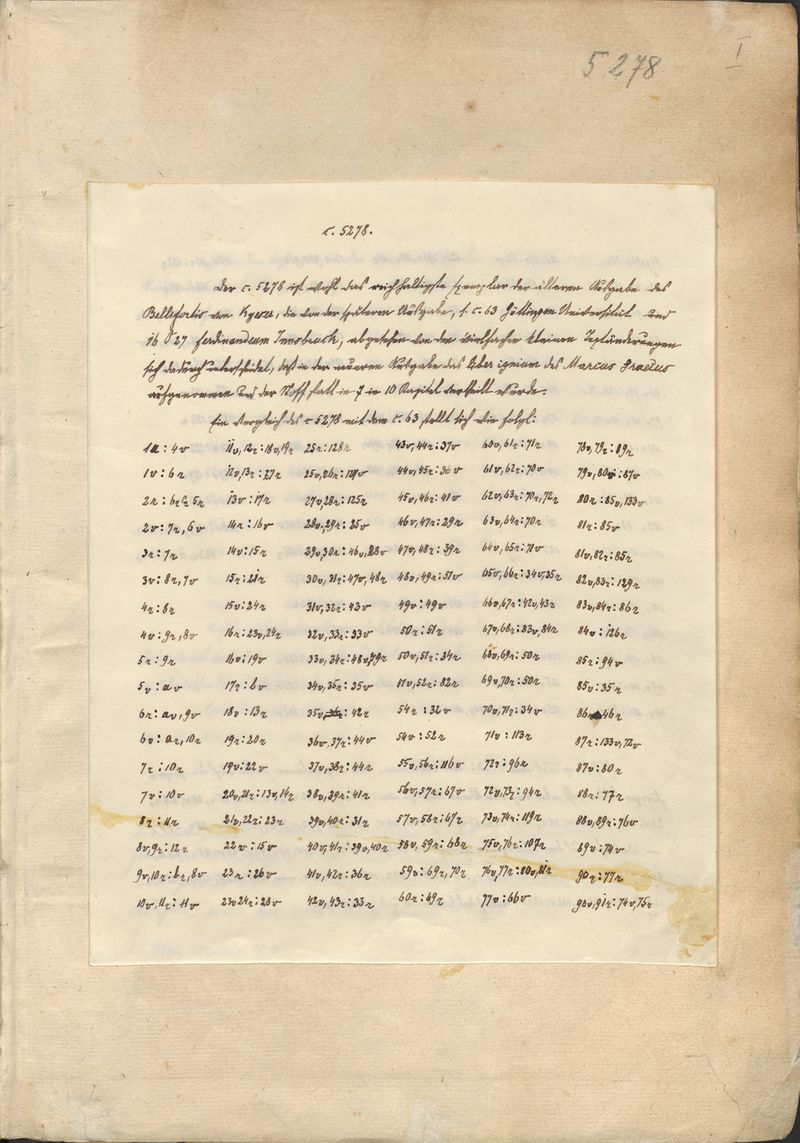 5278
I
c. 5278.
Der c. 5278 ist wohl das reichhaltigste Exemplar der älteren Ausgabe des
Bellifortis von Kyeser, die von der späteren Ausgabe, s. c. 63 Göttingen Universität und
16 0 27 Ferdinandeum Innsbruck, abgesehen von den vielfachen kleinen Textänderungen
sich dadurch unterscheidet, daß in der neueren Ausgabe das Liber ignium des Marcus Graecus
aufgenommen und der Stoff statt in 7 in 10 Kapitel vertheilt wurde.
Ein Vergleich des c 5278 mit dem c. 63 stellt sich wie folgt:
1r : 4v 11v, 12r : 18v, 19r 25r : 128r 43v, 44r : 37v 60v, 61r : 71r 78v, 79r : 89r
1v : 6r 12v, 13r : 27r 25v, 26r : 127v 44v, 45r : 36v 61v, 62r : 70v 79v, 80r : 87v
2r : 6r 5r 13v : 17r 27v, 28r : 125r 45v, 46r : 41v 62v, 63r : 70r, 72r 80r : 85v, 133v
2v : 7r, 6v 14r : 16v 28v, 29r : 35v 46v, 47r : 29r 63v, 64r : 70r 81r : 85v
3r : 7r 14v : 15r 29v, 30r : 46v, 28v 47v, 48r : 39r 64v, 65r : 71v 81v, 82r : 85r
3v : 8r, 7v 15r : 21r 30v, 31r : 47v, 48r 48v, 49r : 51v 65v, 66r : 34v, 35r 82v, 83r : 129r
4r : 8r 15v : 24r 31v, 32r : 43v 49v : 49v 66v, 67r : 42v, 43r 83v, 84r : 86r
4v : 9r, 8v 16r : 23v, 24r 32v, 33r : 33v 50r : 51r 67v, 68r : 83v, 84r 84v : 126r
5r : 9r 16v : 19v 33v, 34r : 48v, 79r 50v, 51r : 34r 68v, 69r : 50r 85r : 94v
5v : av 17r : bv 34v, 35r : 35v 51v, 52r : 82r 69v, 70r : 50r 85v : 35r
6r : av, 9v 18v : 13r 35v : 42r 54r : 32v 70v, 71r : 34v 86r 46r
6v : ar, 10r 19r : 20r 36v, 37r : 44v 54v : 52r 71v : 113r 87r : 133v, 72v
7r : 10r 19v : 22v 37v, 38r : 44r 55v, 56r : 116v 72r : 96r 87v : 80r
7v : 10v 20v, 21r : 13v, 14r 38v, 39r : 41r 56v, 57r : 67v 72v, 73r : 94r 88r : 77r
8r : 11r 21v, 22r : 23r 39v, 40r : 31r 57v, 58r : 67r 73v, 74r : 119r 88v, 89r : 76v
8v, 9r : 12r 22v : 15v 40v, 41r : 39v, 40r 58v, 59r : 68r 75v, 76r : 107r 89v : 74v
9v, 10r : br, 8v 23r : 26v 41v, 42r : 36r 59v : 69r, 70r 76v, 77r : 80v, 81r 90r : 77r
10v, 11r : 11v 23v 24r : 20v 42v, 43r : 33r 60r : 69r 77v : 66v 90v, 91r : 74v, 75r